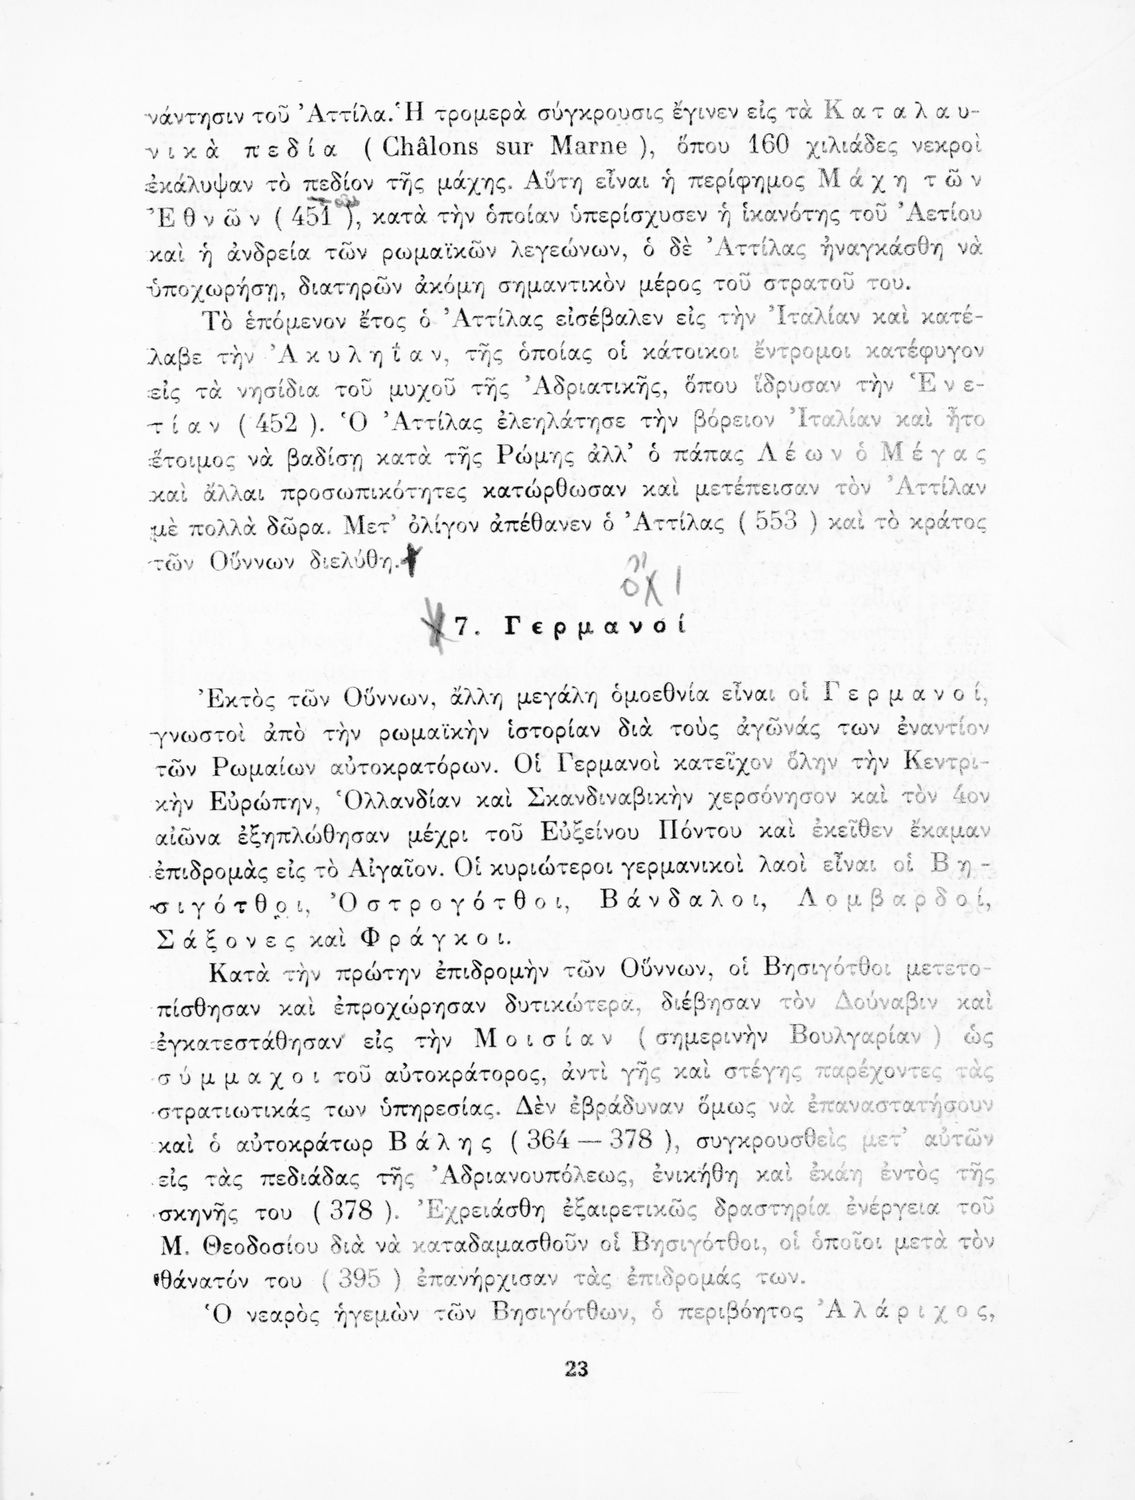 νάντησιν τοῦ Ἀττίλα. Ἡ τρομερὰ σύγκρουσις ἔγινεν εἰς τὰ Καταλαυ-
νικὰ πεδία (Châlons sur Marne), ὅπου 160 χιλιάδες νεκροὶ
ἐκάλυψαν τὸ πεδίον τῆς μάχης. Αὕτη εἶναι ἡ περίφημος Μάχη τῶν
Ἐθνῶν (451), κατὰ τὴν ὁποίαν ὑπερίσχυσεν ἡ ἱκανότης τοῦ Ἀετίου
καὶ ἡ ἀνδρεία τῶν ρωμαϊκῶν λεγεώνων, ὁ δὲ Ἀττίλας ἠναγκάσθη νὰ
ὑποχωρήσῃ, διατηρῶν ἀκόμη σημαντικὸν μέρος τοῦ στρατοῦ του.
Τὸ ἑπόμενον ἔτος ὁ Ἀττίλας εἰσέβαλεν εἰς τὴν Ἰταλίαν καὶ κατέ-
λαβε τὴν Ἀκυληΐαν, τῆς ὁποίας οἱ κάτοικοι ἔντρομοι κατέφυγον
εἰς τὰ νησίδια τοῦ μυχοῦ τῆς Ἀδριατικῆς, ὅπου ἵδρυσαν τὴν Ἑνε-
τίαν (452). Ὁ Ἀττίλας ἐλεηλάτησε τὴν βόρειον Ἰταλίαν καὶ ἦτο
ἕτοιμος νὰ βαδίσῃ κατὰ τῆς Ρώμης ἀλλ' ὁ πάπας Λέων ὁ Μέγας
καὶ ἄλλαι προσωπικότητες κατώρθωσαν καὶ μετέπεισαν τὸν Ἀττίλαν
μὲ πολλὰ δῶρα. Μετ' ὀλίγον ἀπέθανεν ὁ Ἀττίλας (553) καὶ τὸ κράτος
τῶν Οὕννων διελύθη.
ὄχι
7. Γερμανοί
Ἐκτὸς τῶν Οὕννων, ἄλλη μεγάλη ὁμοεθνία εἶναι οἱ Γερμανοί,
γνωστοὶ ἀπὸ τὴν ρωμαϊκὴν ἱστορίαν διὰ τοὺς ἀγῶνάς των ἐναντίον
τῶν Ρωμαίων αὐτοκρατόρων. Οἱ Γερμανοὶ κατεῖχον ὅλην τὴν Κεντρι-
κὴν Εὐρώπην, Ὁλλανδίαν καὶ Σκανδιναβικὴν χερσόνησον καὶ τὸν 4ον
αἰῶνα ἐξηπλώθησαν μέχρι τοῦ Εὐξείνου Πόντου καὶ ἐκεῖθεν ἔκαμαν
ἐπιδρομὰς εἰς τὸ Αἰγαῖον. Οἱ κυριώτεροι γερμανικοὶ λαοὶ εἶναι οἱ Βη-
σιγότθοι, Ὀστρογότθοι, Βάνδαλοι, Λομβαρδοί,
Σάξονες καὶ Φράγκοι.
Κατὰ τὴν πρώτην ἐπιδρομὴν τῶν Οὕννων, οἱ Βησιγότθοι μετετο-
πίσθησαν καὶ ἐπροχώρησαν δυτικώτερα, διέβησαν τὸν Δούναβιν καὶ
ἐγκατεστάθησαν εἰς τὴν Μοισίαν (σημερινὴν Βουλγαρίαν) ὡς
σύμμαχοι τοῦ αὐτοκράτορος, ἀντὶ γῆς καὶ στέγης παρέχοντες τὰς
στρατιωτικάς των ὑπηρεσίας. Δὲν ἐβράδυναν ὅμως νὰ ἐπαναστατήσουν
καὶ ὁ αὐτοκράτωρ Βάλης (364 — 378), συγκρουσθεὶς μετ' αὐτῶν
εἰς τὰς πεδιάδας τῆς Ἀδριανουπόλεως, ἐνικήθη καὶ ἐκάη ἐντὸς τῆς
σκηνῆς του (378). Ἐχρειάσθη ἐξαιρετικῶς δραστηρία ἐνέργεια τοῦ
Μ. Θεοδοσίου διὰ νὰ καταδαμασθοῦν οἱ Βησιγότθοι, οἱ ὁποῖοι μετὰ τὸν
θάνατόν του (395) ἐπανήρχισαν τὰς ἐπιδρομάς των.
Ὁ νεαρὸς ἡγεμὼν τῶν Βησιγότθων, ὁ περιβόητος Ἀλάριχος,
23